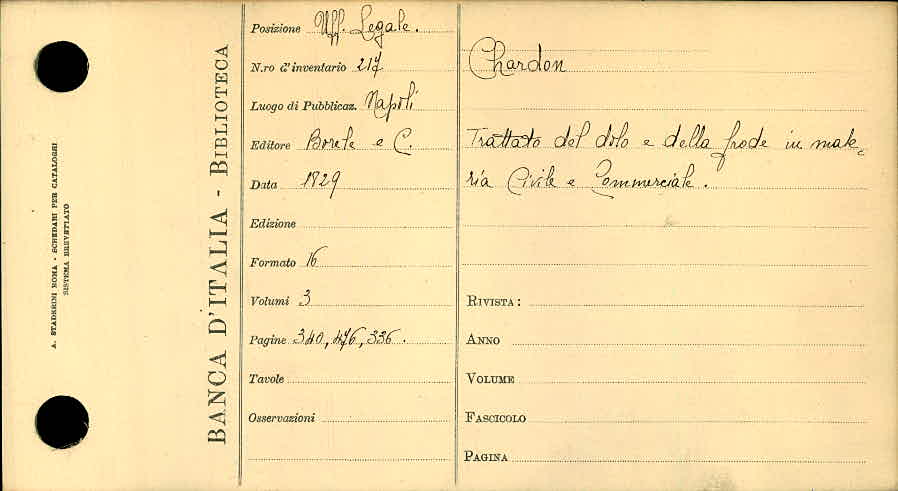 A. STADERINI ROMA - SCHEDARI PER CATALOGHI
SISTEMA BREVETTATO
BANCA D'ITALIA - BIBLIOTECA
Posizione Uff. Legale.
N.ro d'inventario 217
Luogo di Pubblicaz. Napoli
Editore Borele e C.
Data 1829
Edizione
Formato 16
Volumi 3
Pagine 340, 476, 336.
Tavole
Osservazioni
Chardon
Trattato del dolo e della frode in mate=
ria Civile e Commerciale.
RIVISTA:
ANNO
VOLUME
FASCICOLO
PAGINA